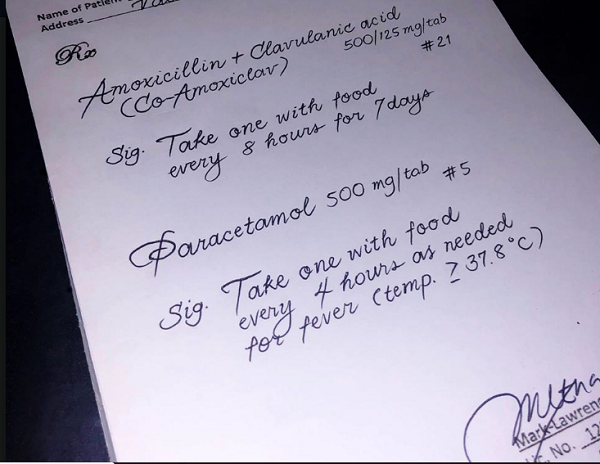 Name of Patient
Address
Rx
Amoxicillin + Clavulanic acid
(Co-Amoxiclav)
500/125 mg/tab
#21
Sig. Take one with food
every 8 hours for 7 days
Paracetamol 500 mg/tab #5
Sig. Take one with food
every 4 hours as needed
for fever (temp. ≥ 37.8°C)
Mark Lawren
No. 12